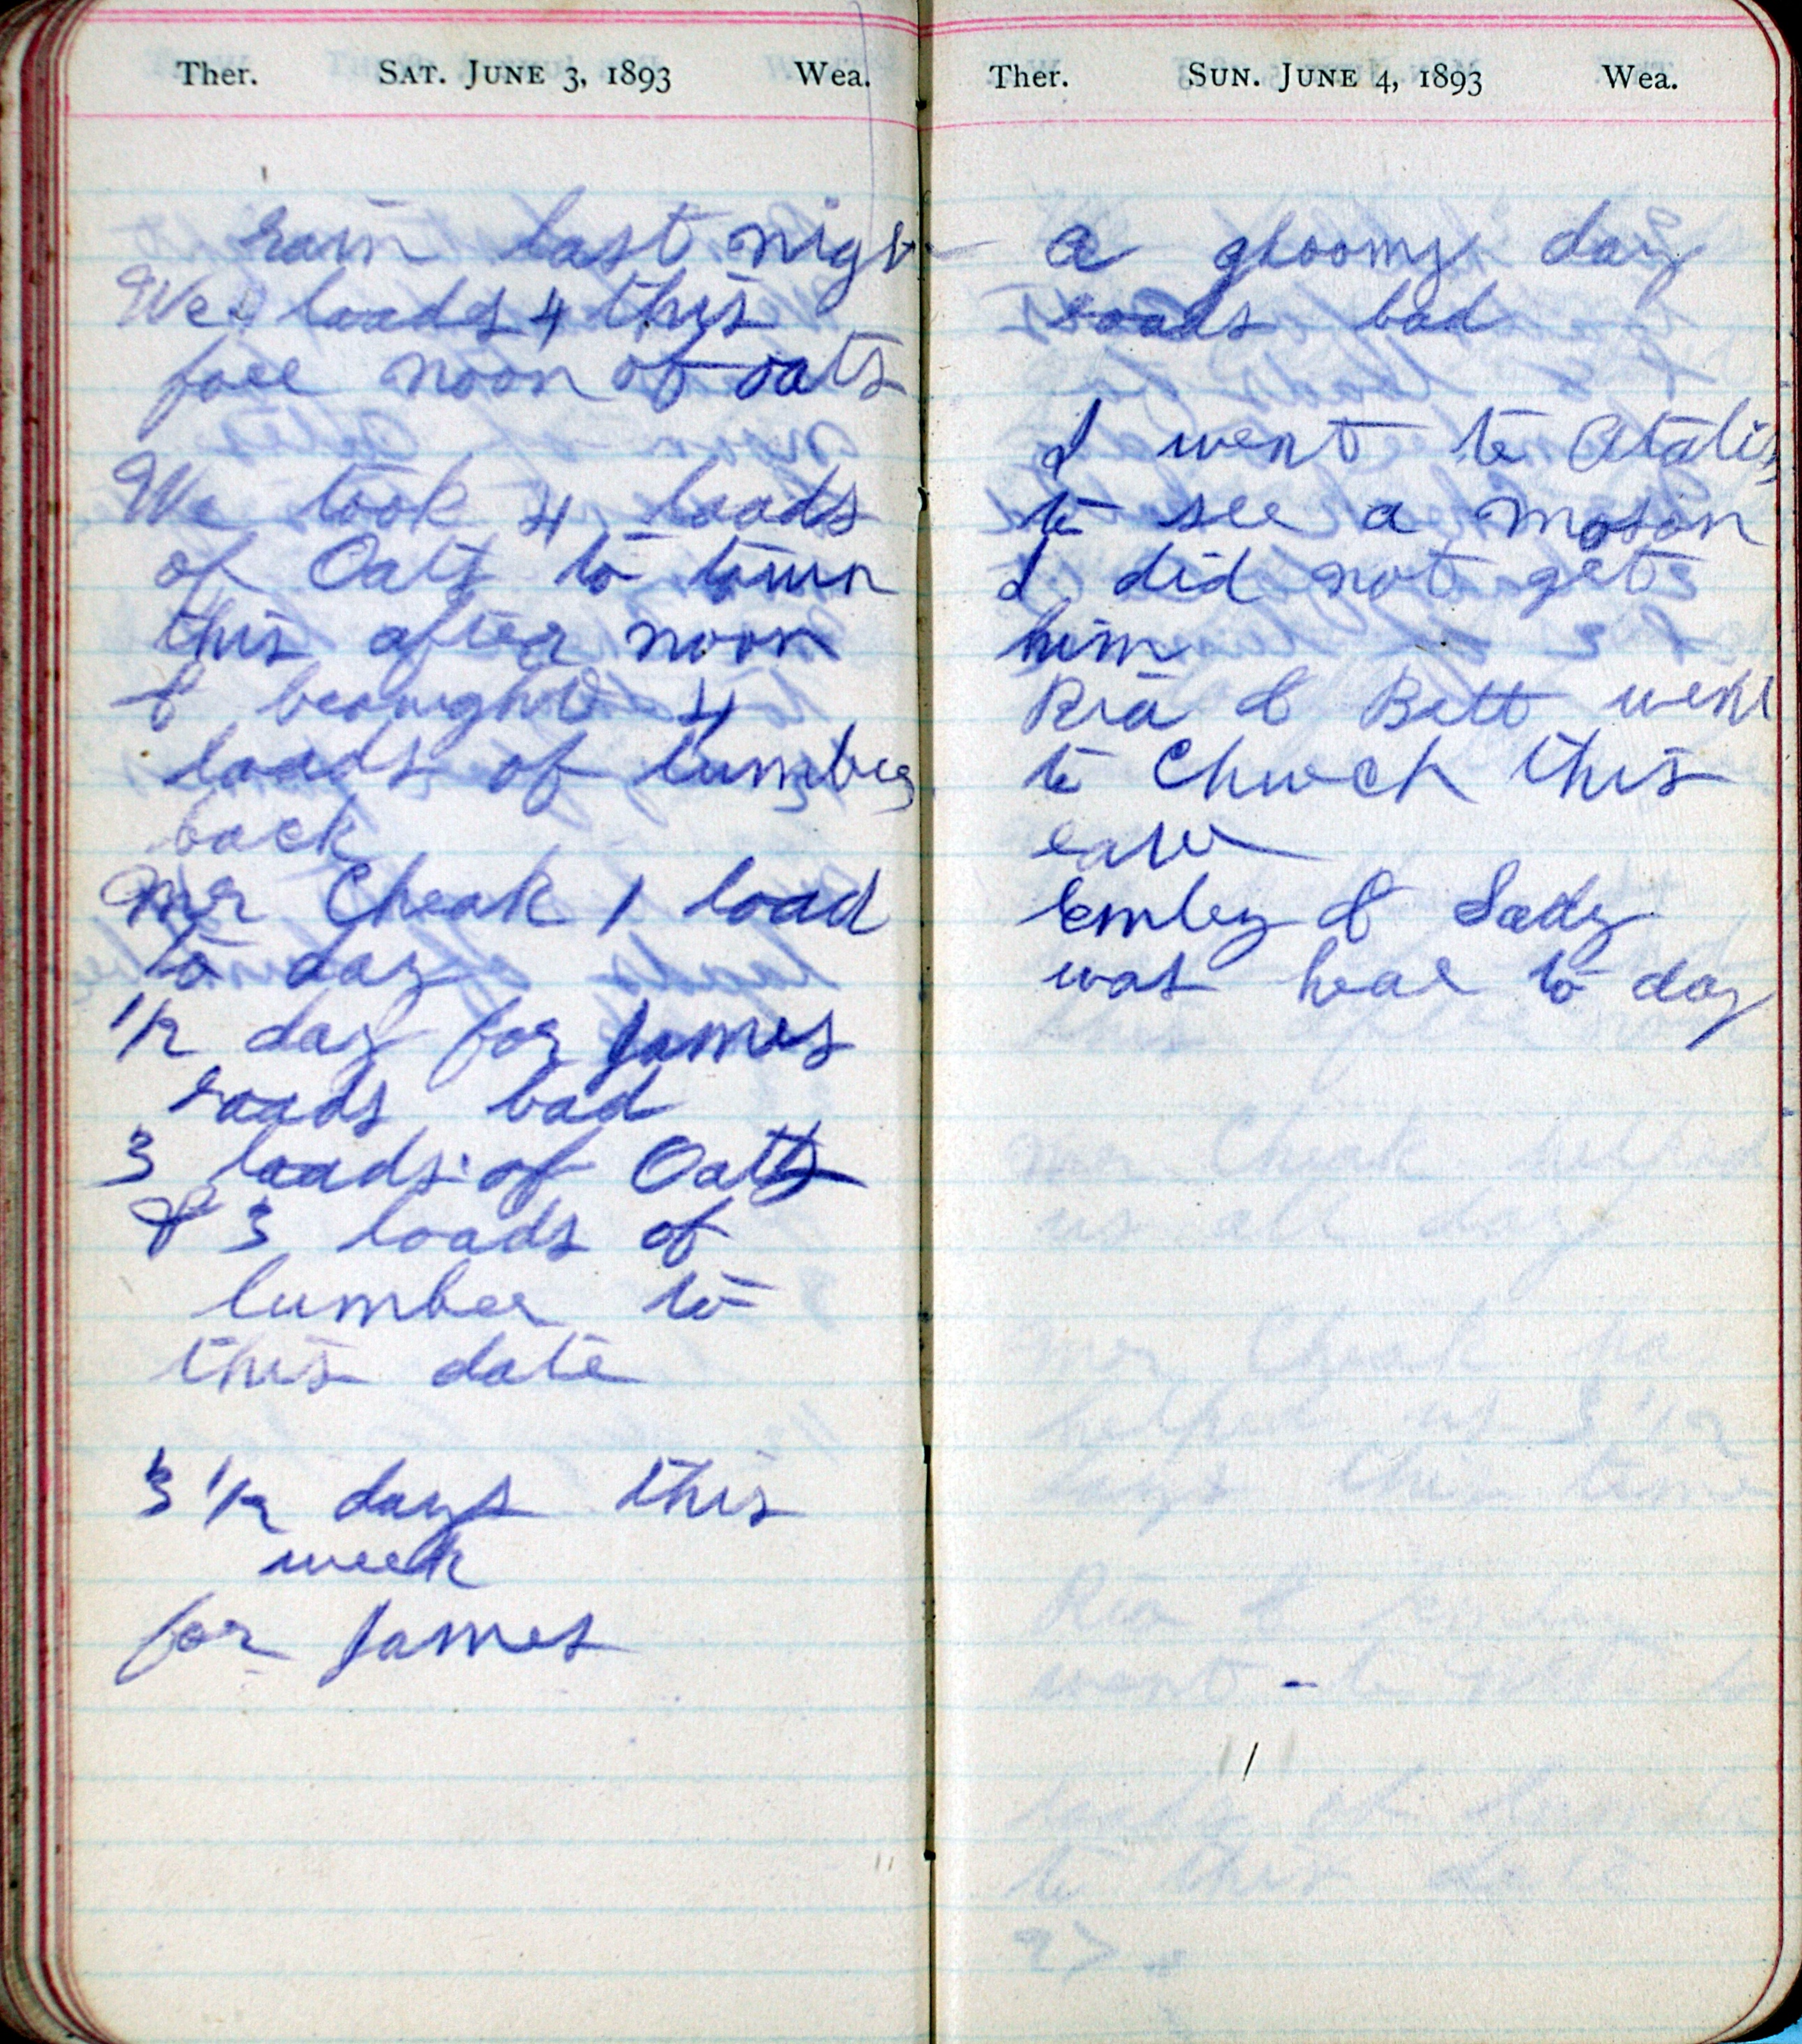 Ther. SAT. JUNE 3, 1893 Wea.
rain last night
We loads 4 this
fore noon of oats
We took 4 loads
of Oats to town
this after noon
& brought 4
loads of lumber
back
Mr Cheak 1 load
to day
1/2 day for James
roads bad
3 loads of Oats
& 3 loads of
lumber to
this date
3 1/2 days this
week
for James
Ther. SUN. JUNE 4, 1893 Wea.
a gloomy day
roads bad
I went to
to see a mason
I did not get
him
Ria & Bett went
to Church this
eave
Emley & Sady
was hear to day